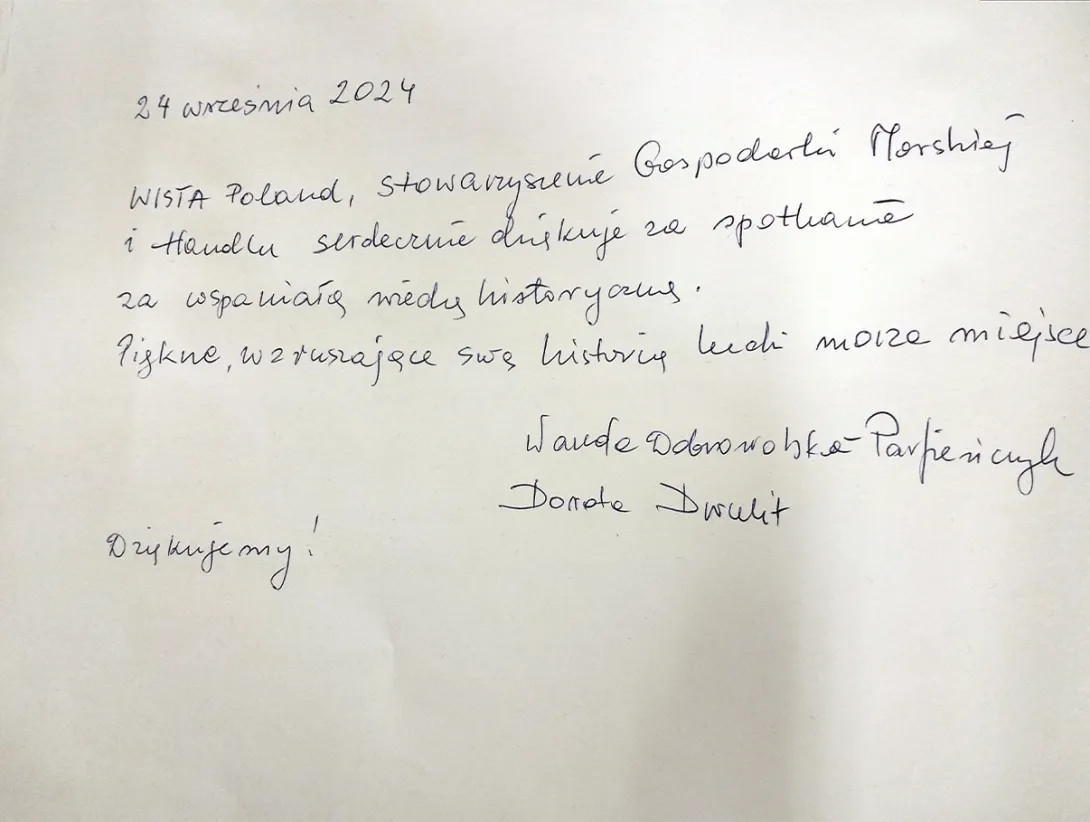 24 września 2024
WISTA Poland, Stowarzyszenie Gospodarki Morskiej
i Handlu serdecznie dziękuje za spotkanie
za wspaniałą wiedzę historyczną.
Piękne, wzruszające swą historią ludzi morza miejsce
Wanda Dobrowolska-Parfieńczyk
Dorota Dwulit
Dziękujemy!